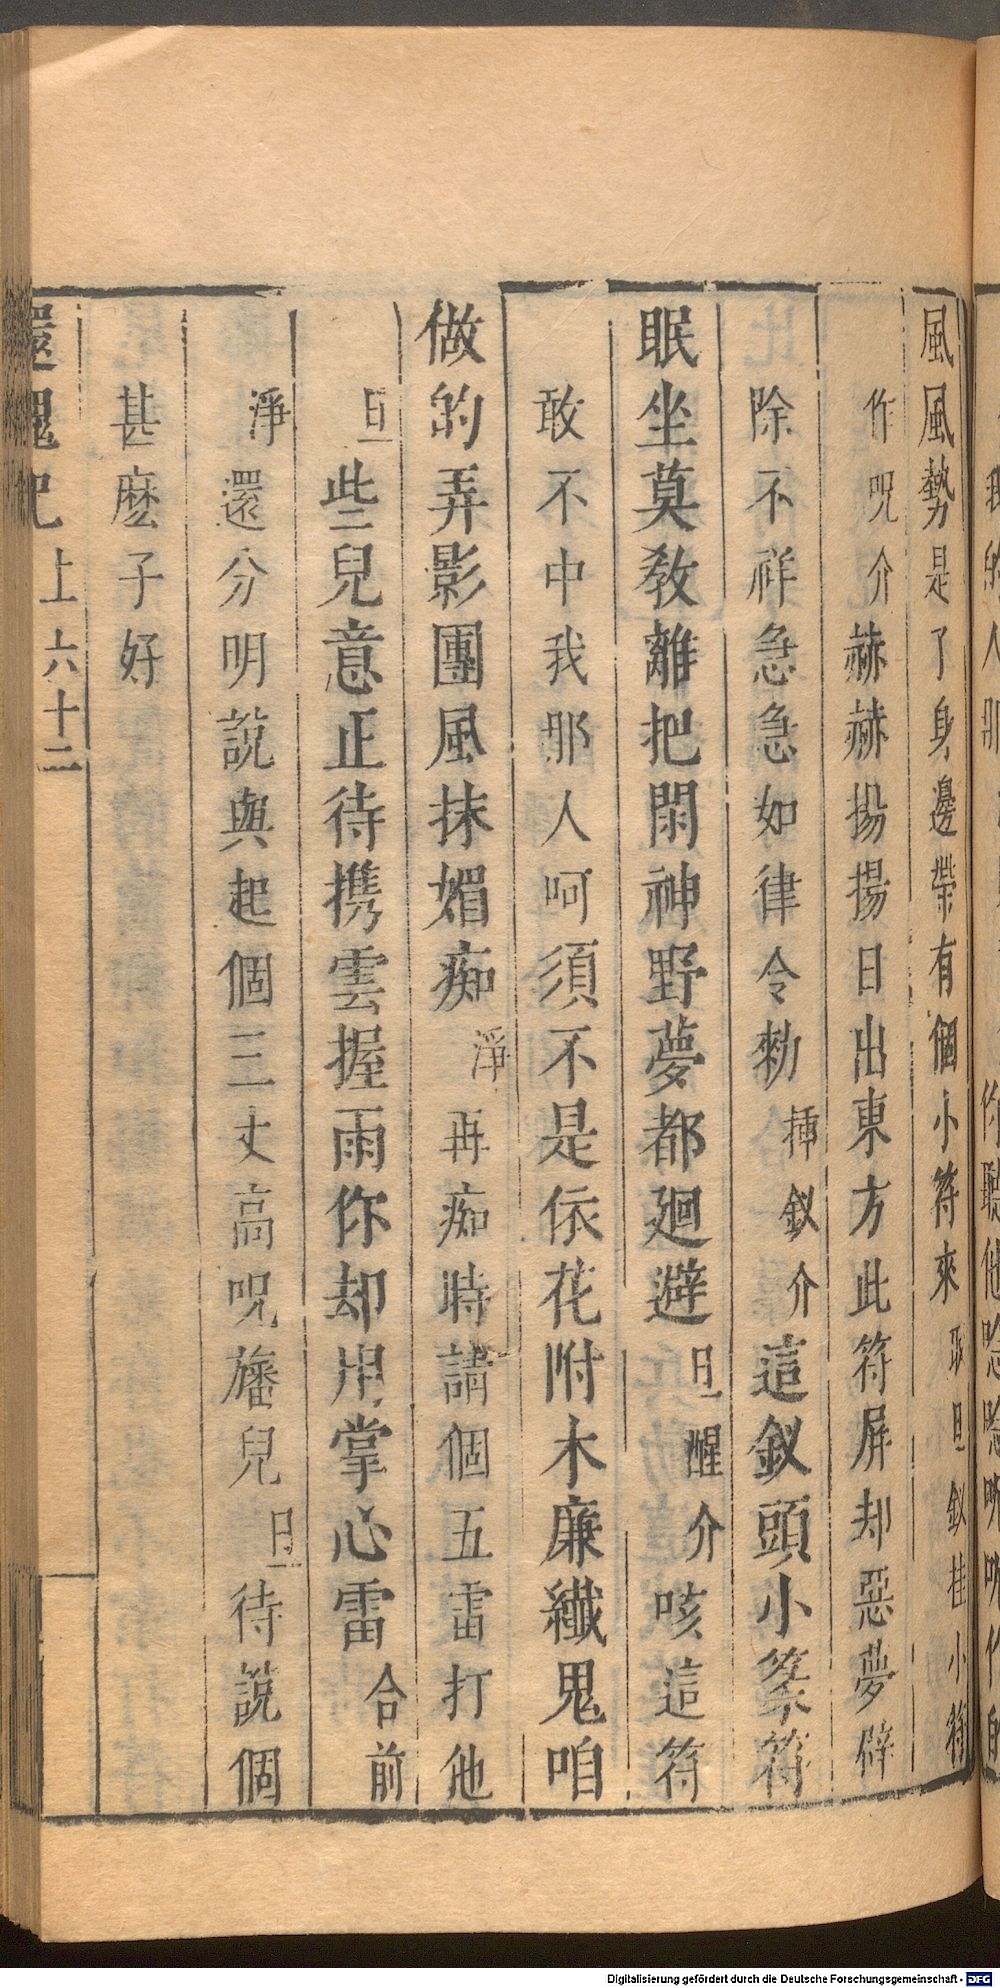 風風勢是了身邊帶有個小符來取旦釵挂小符
作呪介赫赫揚揚日出東方此符屏却惡夢辟
除不祥急急如律令勑挿釵介這釵頭小篆符
眠坐莫敎離把閑神野夢都廻避旦醒介咳這符
敢不中我那人呵須不是依花附木廉纖鬼咱
做的弄影團風抹媚痴淨再痴時請個五雷打他
旦些兒意正待携雲握雨你却用掌心雷合前
淨還分明說與起個三丈高呪旛兒旦待說個
甚麽子好
還魂記上六十二
Digitalisierung gefördert durch die Deutsche Forschungsgemeinschaft - DFG